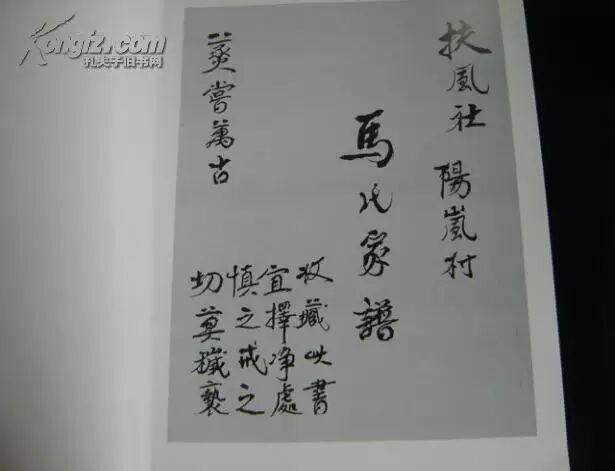 扶風社 陽嵐村
馬氏家譜
收藏此書
宜擇净處
慎之戒之
切莫穢褻
蒸嘗萬古
Kongfz.com
孔夫子旧书网